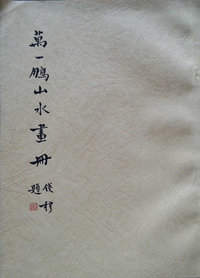 萬一鵬山水畫冊
錢穆
題